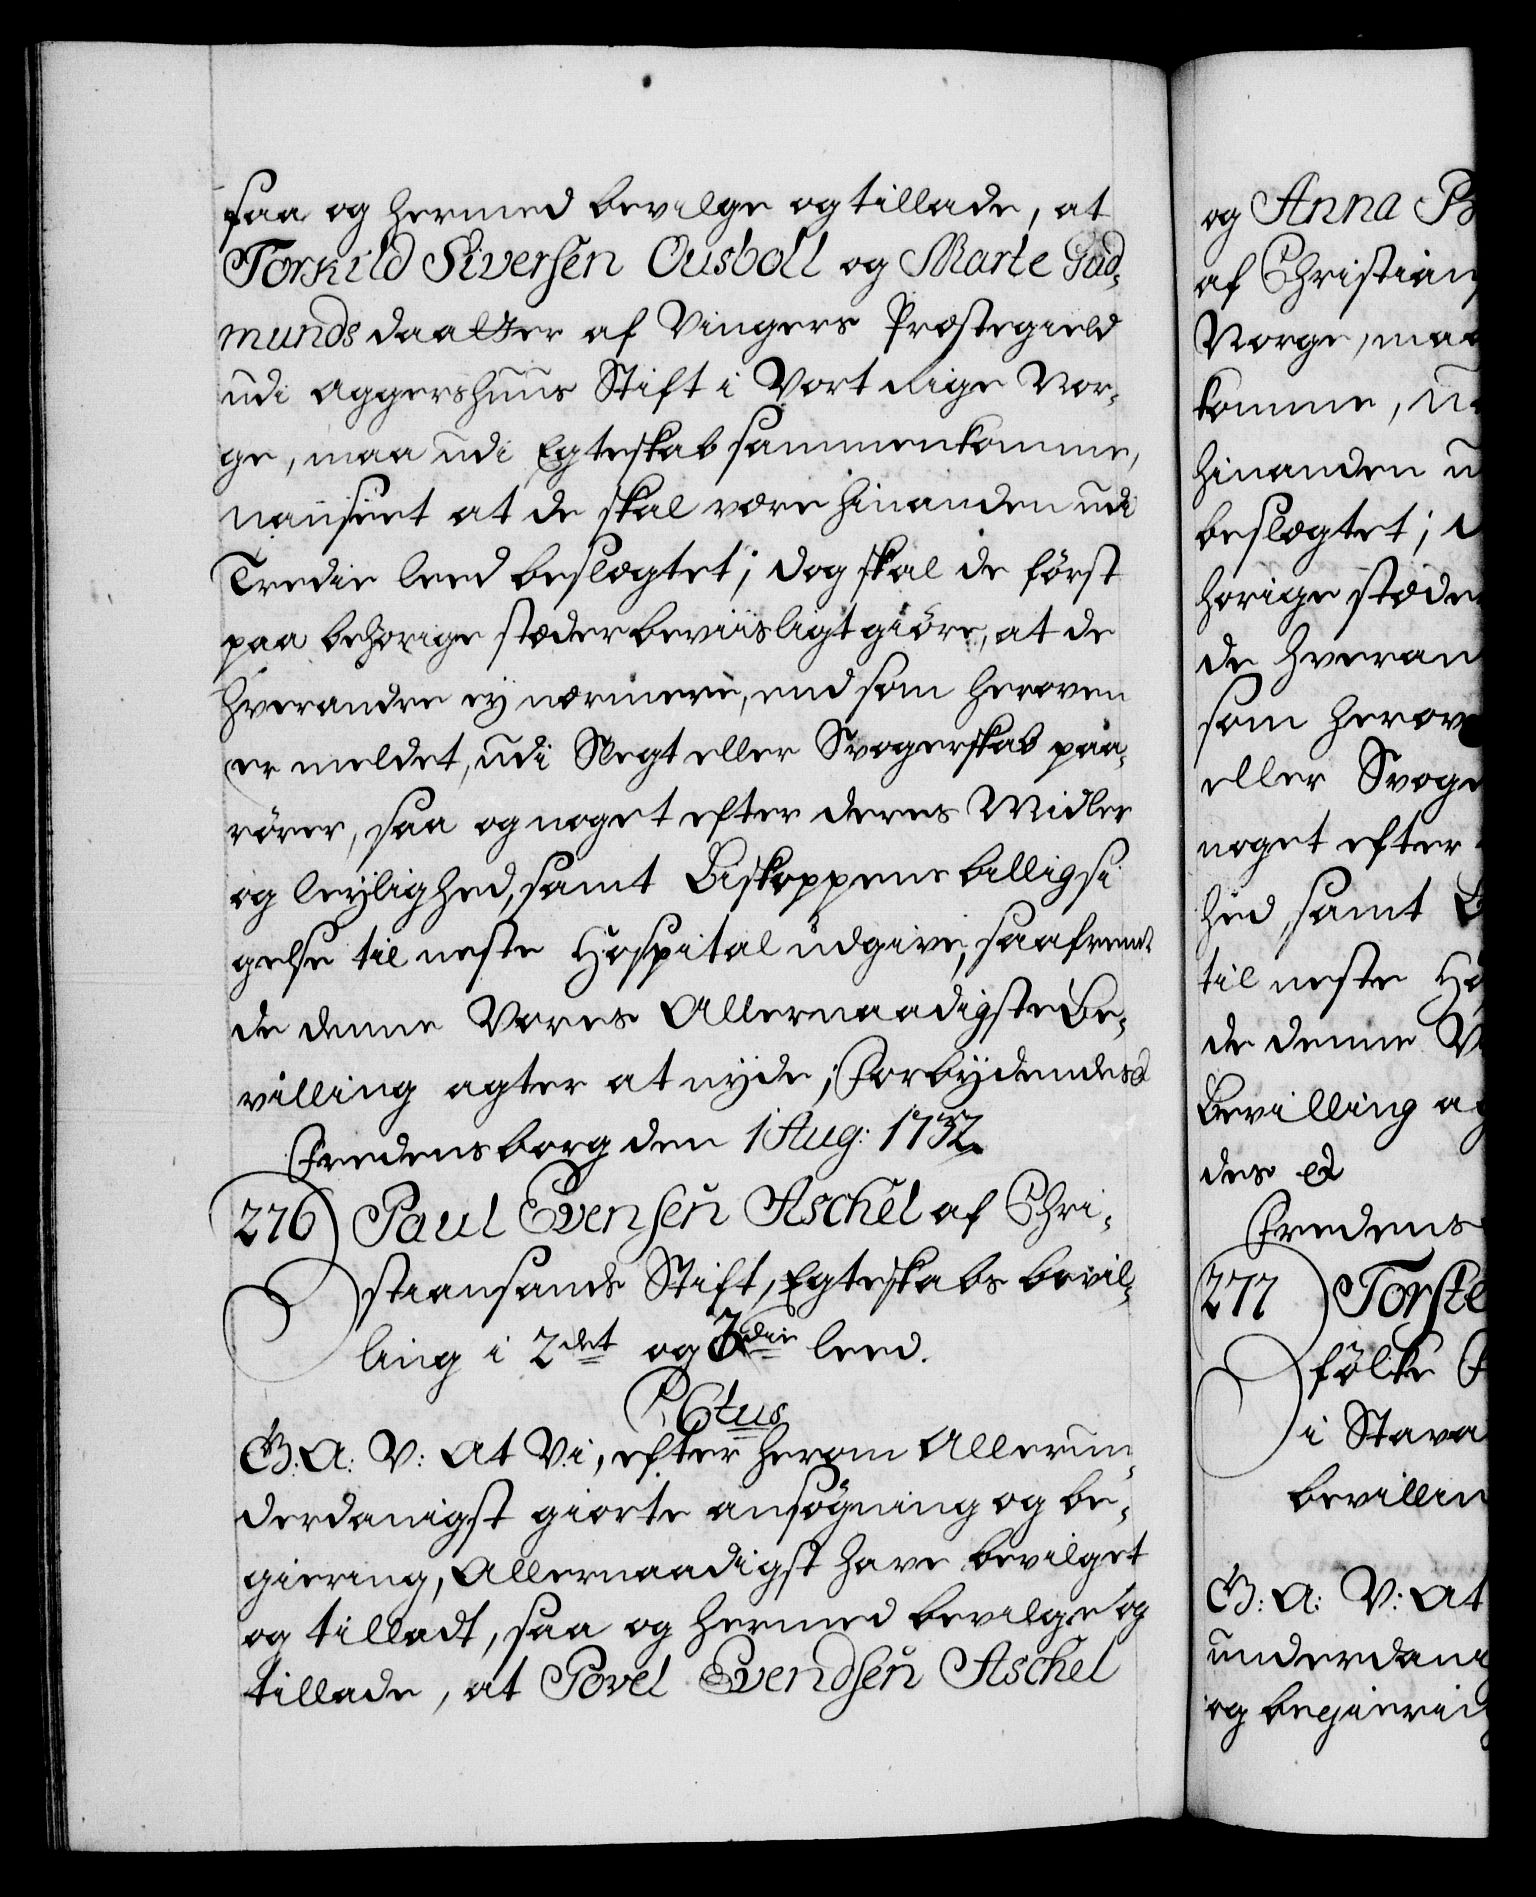 saa og hermed bevilge og tillade, at
Torkild Siversen Ousboll og Marte Gud¬
munds daatter af Vingers Præstegield
udi Aggershuus Stift i Vort Rige Nor¬
ge, maa udi Egteskab sammenkomme,
uanseet at de skal være hinanden udi
Tredie leed beslægtet; dog skal de först
paa behörige stæder beviisligt giöre, at de
hverandre ey nærmere, end som heroven
er meldet, udi Slegt eller Svogerskab paa¬
rörer, saa og noget efter deres Midler
og leylighed, samt Biskoppens billigsi
gelse til neste Hospital udgive, saafremt
de denne Vores Allernaadigste Be¬
villing agter at nyde; Forbydendes &
Fredensborg den 1 Aug: 1732.
276) Paul Evensen Aschel af Chri¬
stiansands Stift, Egteskabs bevil¬
ling i 2det og 3die leed.
C: 6tus
G: A: V: At Vi, efter herom Allerun¬
derdanigst giorte ansögning og be¬
giering, Allernaadigst have bevilget
og tilladt, saa og hermed bevilge og
tillade, at Povel Evendsen Aschel
og Anna
af Christian
Norge, maa
komme,
hinanden u
beslægtet;
hörige stæder
de hveran
som herov
eller Svoge
noget efter
hed, samt
til neste Ho
de denne V
Bevilling ag
des &
Fredens
277) Torste
fölke
i Stava
bevillin
G: A: V: At
underdani
og begiering